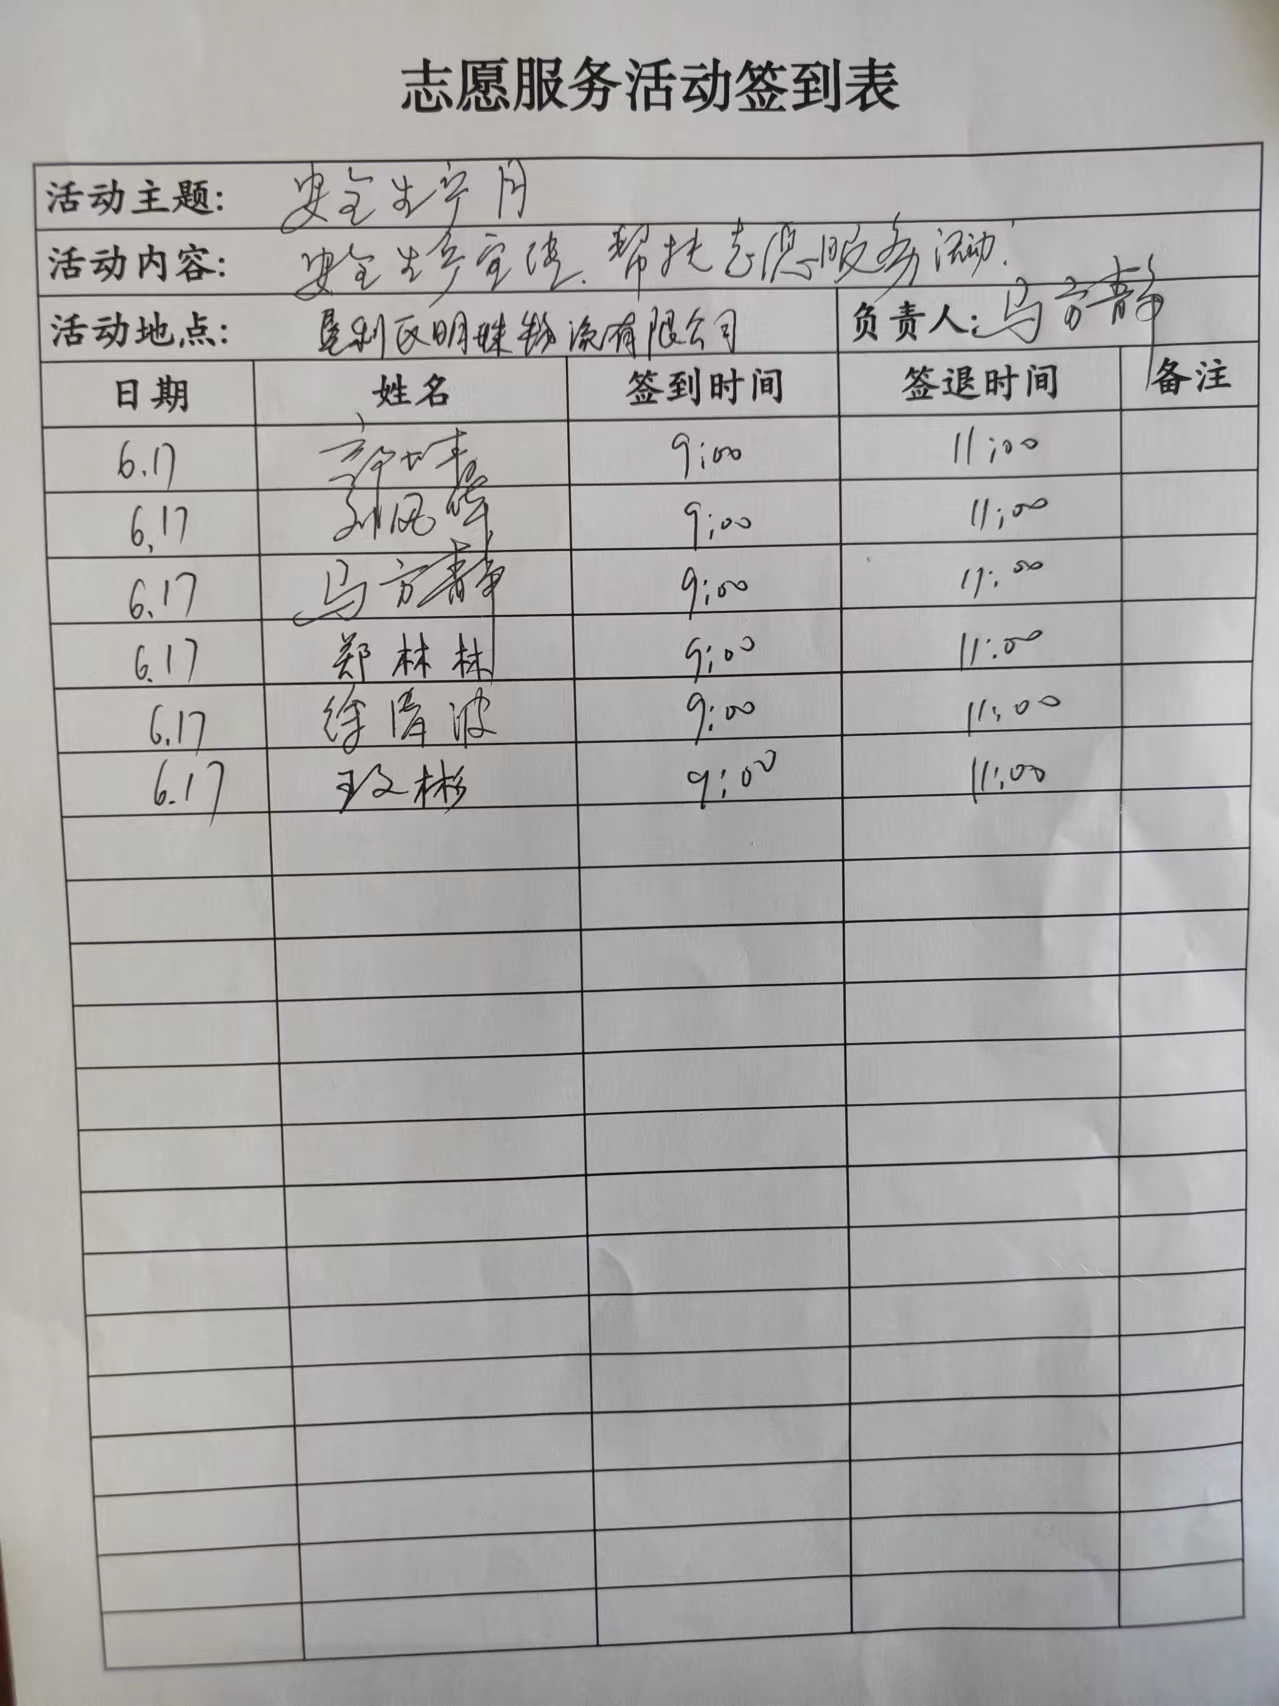 志愿服务活动签到表
活动主题: 安全生产月
活动内容: 安全生产宣传、帮扶志愿服务活动.
活动地点: 垦利区明珠物流有限公司 负责人: 马方静
日期 姓名 签到时间 签退时间 备注
6.17 9:00 11:00
6.17 刘风 9:00 11:00
6.17 马方静 9:00 11:00
6.17 郑林林 9:00 11:00
6.17 徐清波 9:00 11:00
6.17 彬 9:00 11:00